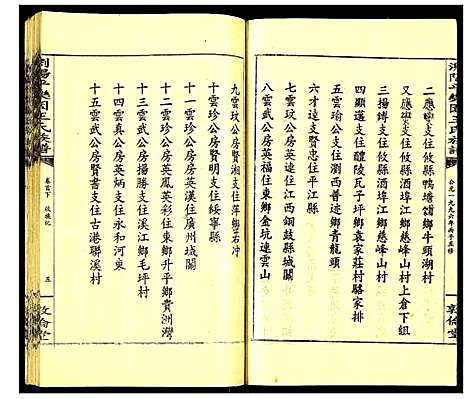 瀏陽平樂園王氏族譜
公元一九九六年丙子五修
敦倫堂
二應中支住攸縣鴨塘鋪鄉牛頭湖村
又應中支住攸縣酒埠江鄉慈峰山村上倉下組
三揚鏄支住攸縣酒埠江鄉慈峰山村
四顯遠支住醴陵瓦子坪鄉袁家莊村駱家排
五雲瑜公支住瀏西普迹鄉青龍頭
六才遠支賢忠住平江縣
七雲玟公房英遠住江西銅鼓縣城關
八雲武公房英福住東鄉金坑連雲山
九雲玟公房賢湘支住萍鄉石冲
十雲珍公房賢明支住綏寧縣
十一雲珍公房英漢住廣州城關
十二雲珍公房英鳳英彩住東鄉升平鄉貴洲灣
十三雲武公房揚勝支住溪江鄉毛坪村
十四雲真公房英炳支住永和河東
十五雲武公房賢書支住古港聯溪村
瀏陽平樂園王氏族譜
卷首下
五
敦倫堂